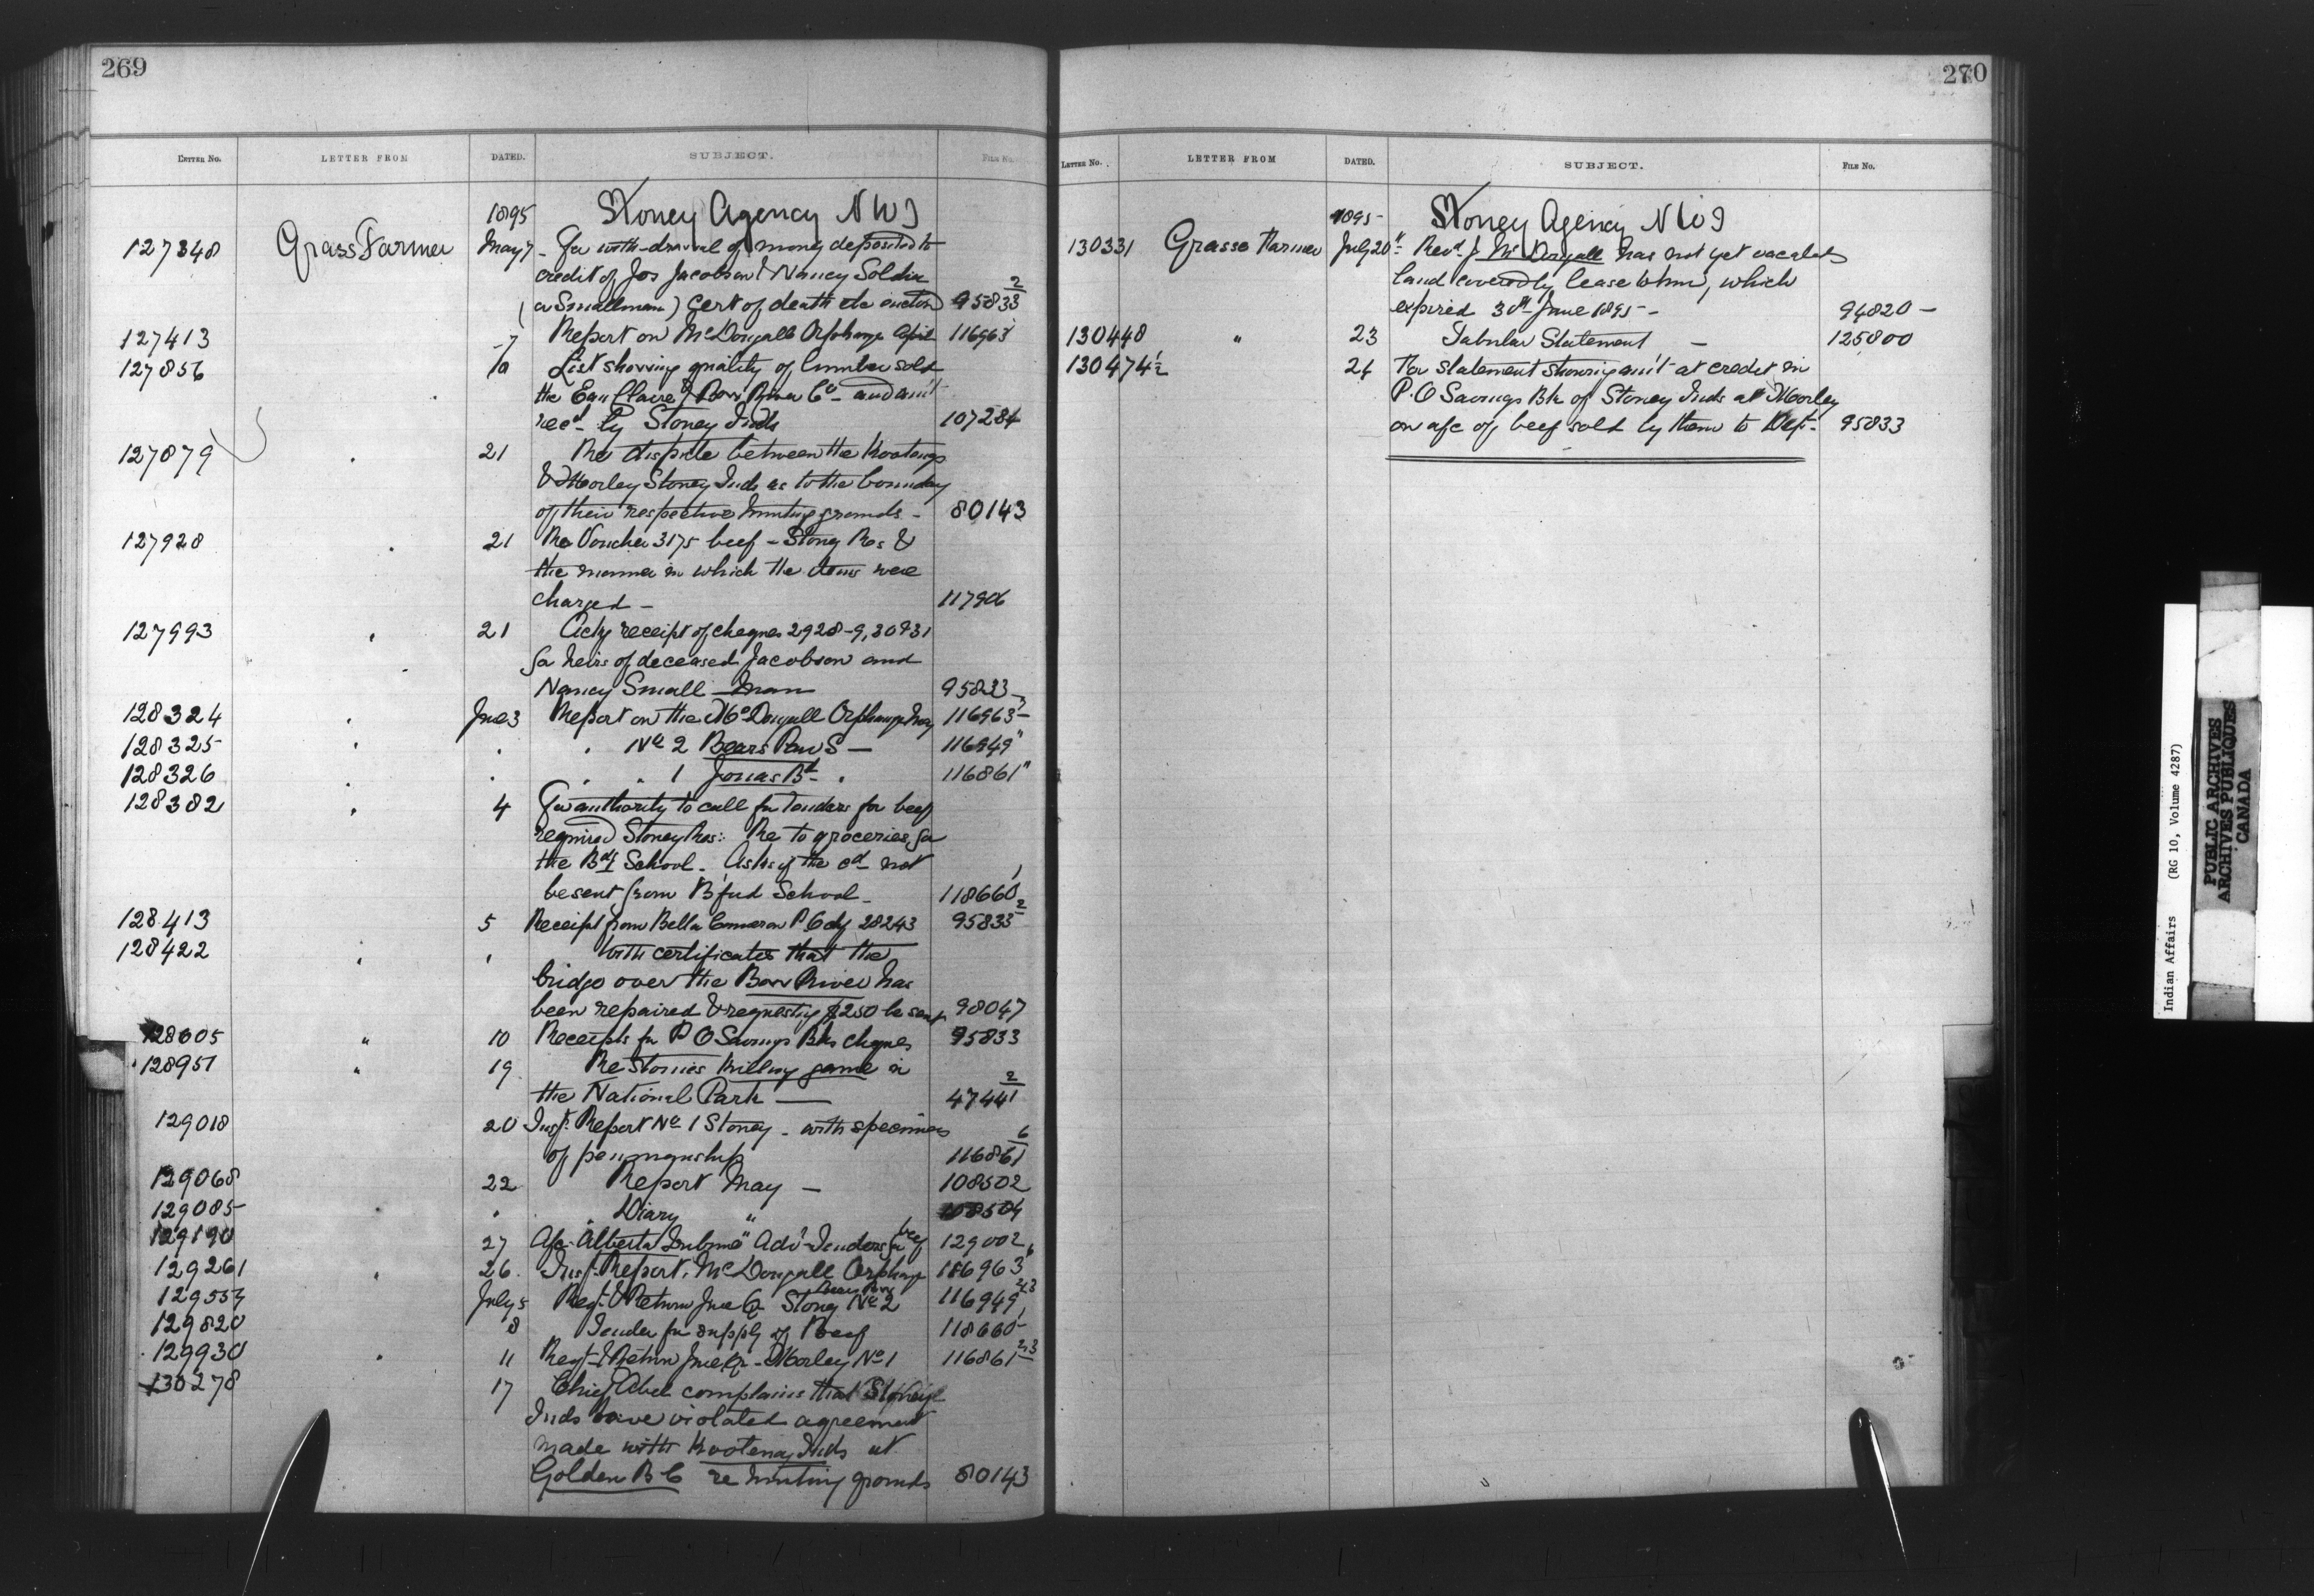 269
LETTER No. LETTER FROM DATED. SUBJECT. FILE No.
1895 Stoney Agency NWT
127348 Grass Farmer May 7 For with-drawal of money deposited to
credit of Jos Jacobson & Nancy Soldier
(or Smallman) Cert of death etc enclosed 95833 2
127413 -7 Report on McDougall Orphange April 116963
127856 10 List showing quality of lumber sold
the Eau Claire & Bow River Co - and am't
recd by Stoney Inds 107284
127879 21 Re dispute between the Kootenays
& Morley Stoney Inds as to the boundary
of their respective hunting grounds - 80143
127928 21 Re Voucher 3175 beef - Stony Res &
the manner in which the items were
charged - 117906
127993 21 Ackg receipt of cheques 2928-9, 30 & 31
for heirs of deceased Jacobson and
Nancy Small-man 95833
128324 June 3 Report on the McDougall Orphange May 116963 -
128325 " " No 2 Bears Paw S - 116949 "
128326 " " " 1 Jonas Bd " 116861 "
128382 4 For authority to call for Tenders for beef
required Stoney Res: Re to groceries for
the Bdg School. Asks if the cd not
be sent from B'ford School - 118660 1
128413 5 Receipt from Bella Cameron P.C dy 28243 95833 2
128422 " With certificates that the
bridge over the Bow River has
been repaired & requesting $250 be sent 98047
128605 " 10 Receipts for P O Savings Bks cheques 95833
128951 " 19 Re Stonies killing game in
the National Park - 47441 2
129018 20 Insp. Report No 1 Stoney - with specimens
of penmanship 116861 6
129068 22 Report May - 108502
129085 " " Diary " 108504
129190 27 A/c "Alberta Tribune" Adv. Tenders for beef 129002
129261 " 26 Insp. Report, McDougall Orphange 116963
129557 July 5 Regr. & Return June Qr Stony No 2 Bears Paw 116949 2/3
129820 8 Tender for supply of Beef 118660 1
129930 " 11 Regr & Return June Qr - Morley No 1 116861 2/3
130278 17 Chief Abel complains that Stoney
Inds have violated agreement
made with Kootenay Inds at
Golden B C re hunting grounds 80143
270
LETTER No. LETTER FROM DATED. SUBJECT. FILE No.
1895 Stoney Agency NWT
130331 Grasse Farmer July 20 Revd J. McDougall has not yet vacated
land covered by lease to him, which
expired 30th June 1895 - 94820 -
130448 " 23 Tabular Statement - 125800
130474½ 24 For statement showing am't at credit in
P.O Savings Bk of Stoney Inds at Morley
on a/c of beef sold by them to Dept. 95833
Indian Affairs (RG 10, Volume 4287)
PUBLIC ARCHIVES
ARCHIVES PUBLIQUES
CANADA